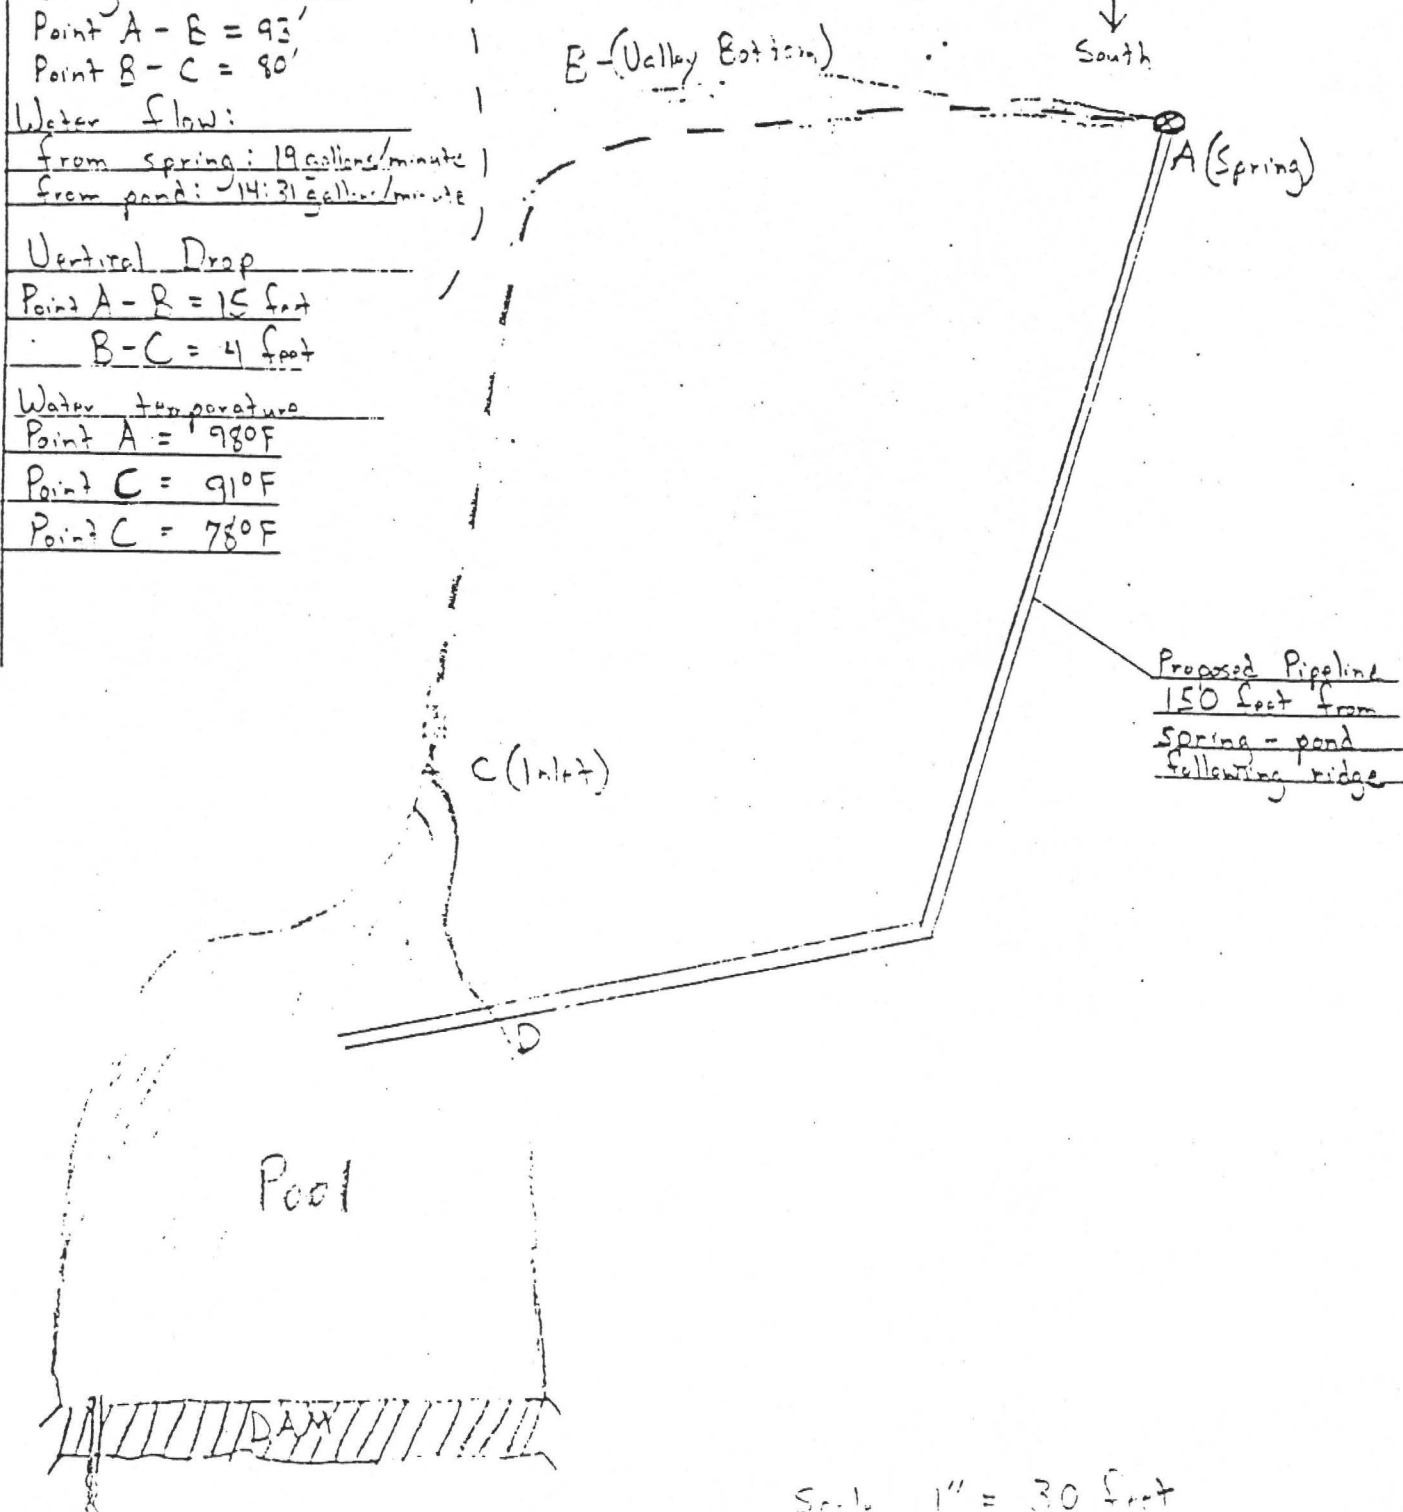 Point A - B = 93'
Point B - C = 80'
Water flow:
from spring: 19 gallons/minute
from pond: 14:31 gallons/minute
Vertical Drop
Point A - B = 15 feet
B - C = 4 feet
Water temperature
Point A = 98°F
Point C = 91°F
Point C = 78°F
South
B - (Valley Bottom)
A (Spring)
Proposed Pipeline
150 feet from
spring - pond
following ridge
C (Inlet)
D
Pool
DAM
Scale 1" = 30 feet